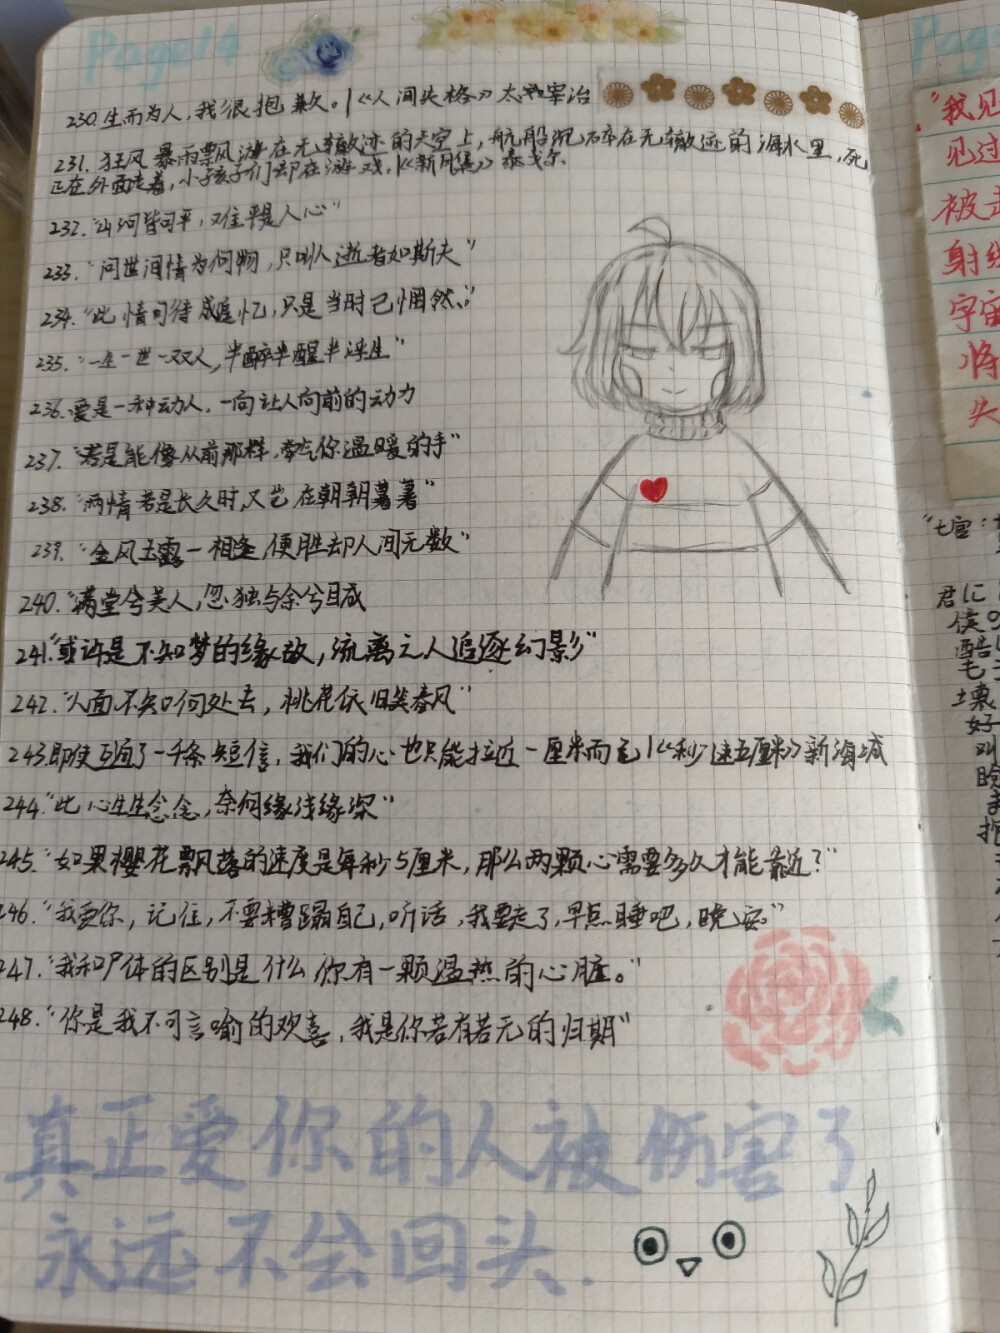 Page14
230.生而为人,我很抱歉。|《人间失格》太宰治
231.狂风暴雨飘游在无辙迹的天空上,航船沉碎在无辙迹的海水里,死
正在外面走着,小孩子们却在游戏,|《新月集》泰戈尔
232."山河皆可平,难平是人心"
233."问世间情为何物,只叫人逝者如斯夫"
234."此情可待成追忆,只是当时已惘然。"
235."一生一世一双人,半醉半醒半浮生"
236.爱是一种动人,一向让人向前的动力
237."若是能像从前那样,牵你温暖的手"
238."两情若是长久时,又岂在朝朝暮暮"
239."金风玉露一相逢,便胜却人间无数"
240."满堂兮美人,忽独与余兮目成
241."或许是不知梦的缘故,流离之人追逐幻影"
242."人面不知何处去,桃花依旧笑春风"
243.即使互通了一千条短信,我们的心也只能拉近一厘米而已|《秒速五厘米》新海诚
244."此心生生念念,奈何缘浅缘深"
245."如果樱花飘落的速度是每秒5厘米,那么两颗心需要多久才能靠近?"
246."我爱你,记住,不要糟蹋自己,听话,我要走了,早点睡吧,晚安。"
247."我和尸体的区别是什么 你有一颗温热的心脏。"
248."你是我不可言喻的欢喜,我是你若有若无的归期"
真正爱你的人被伤害了
永远不会回头.
Page
"我见
见过
被击
射线
宇宙
将
失
"七宫:
君に
僕の
酷
毛
壊
好